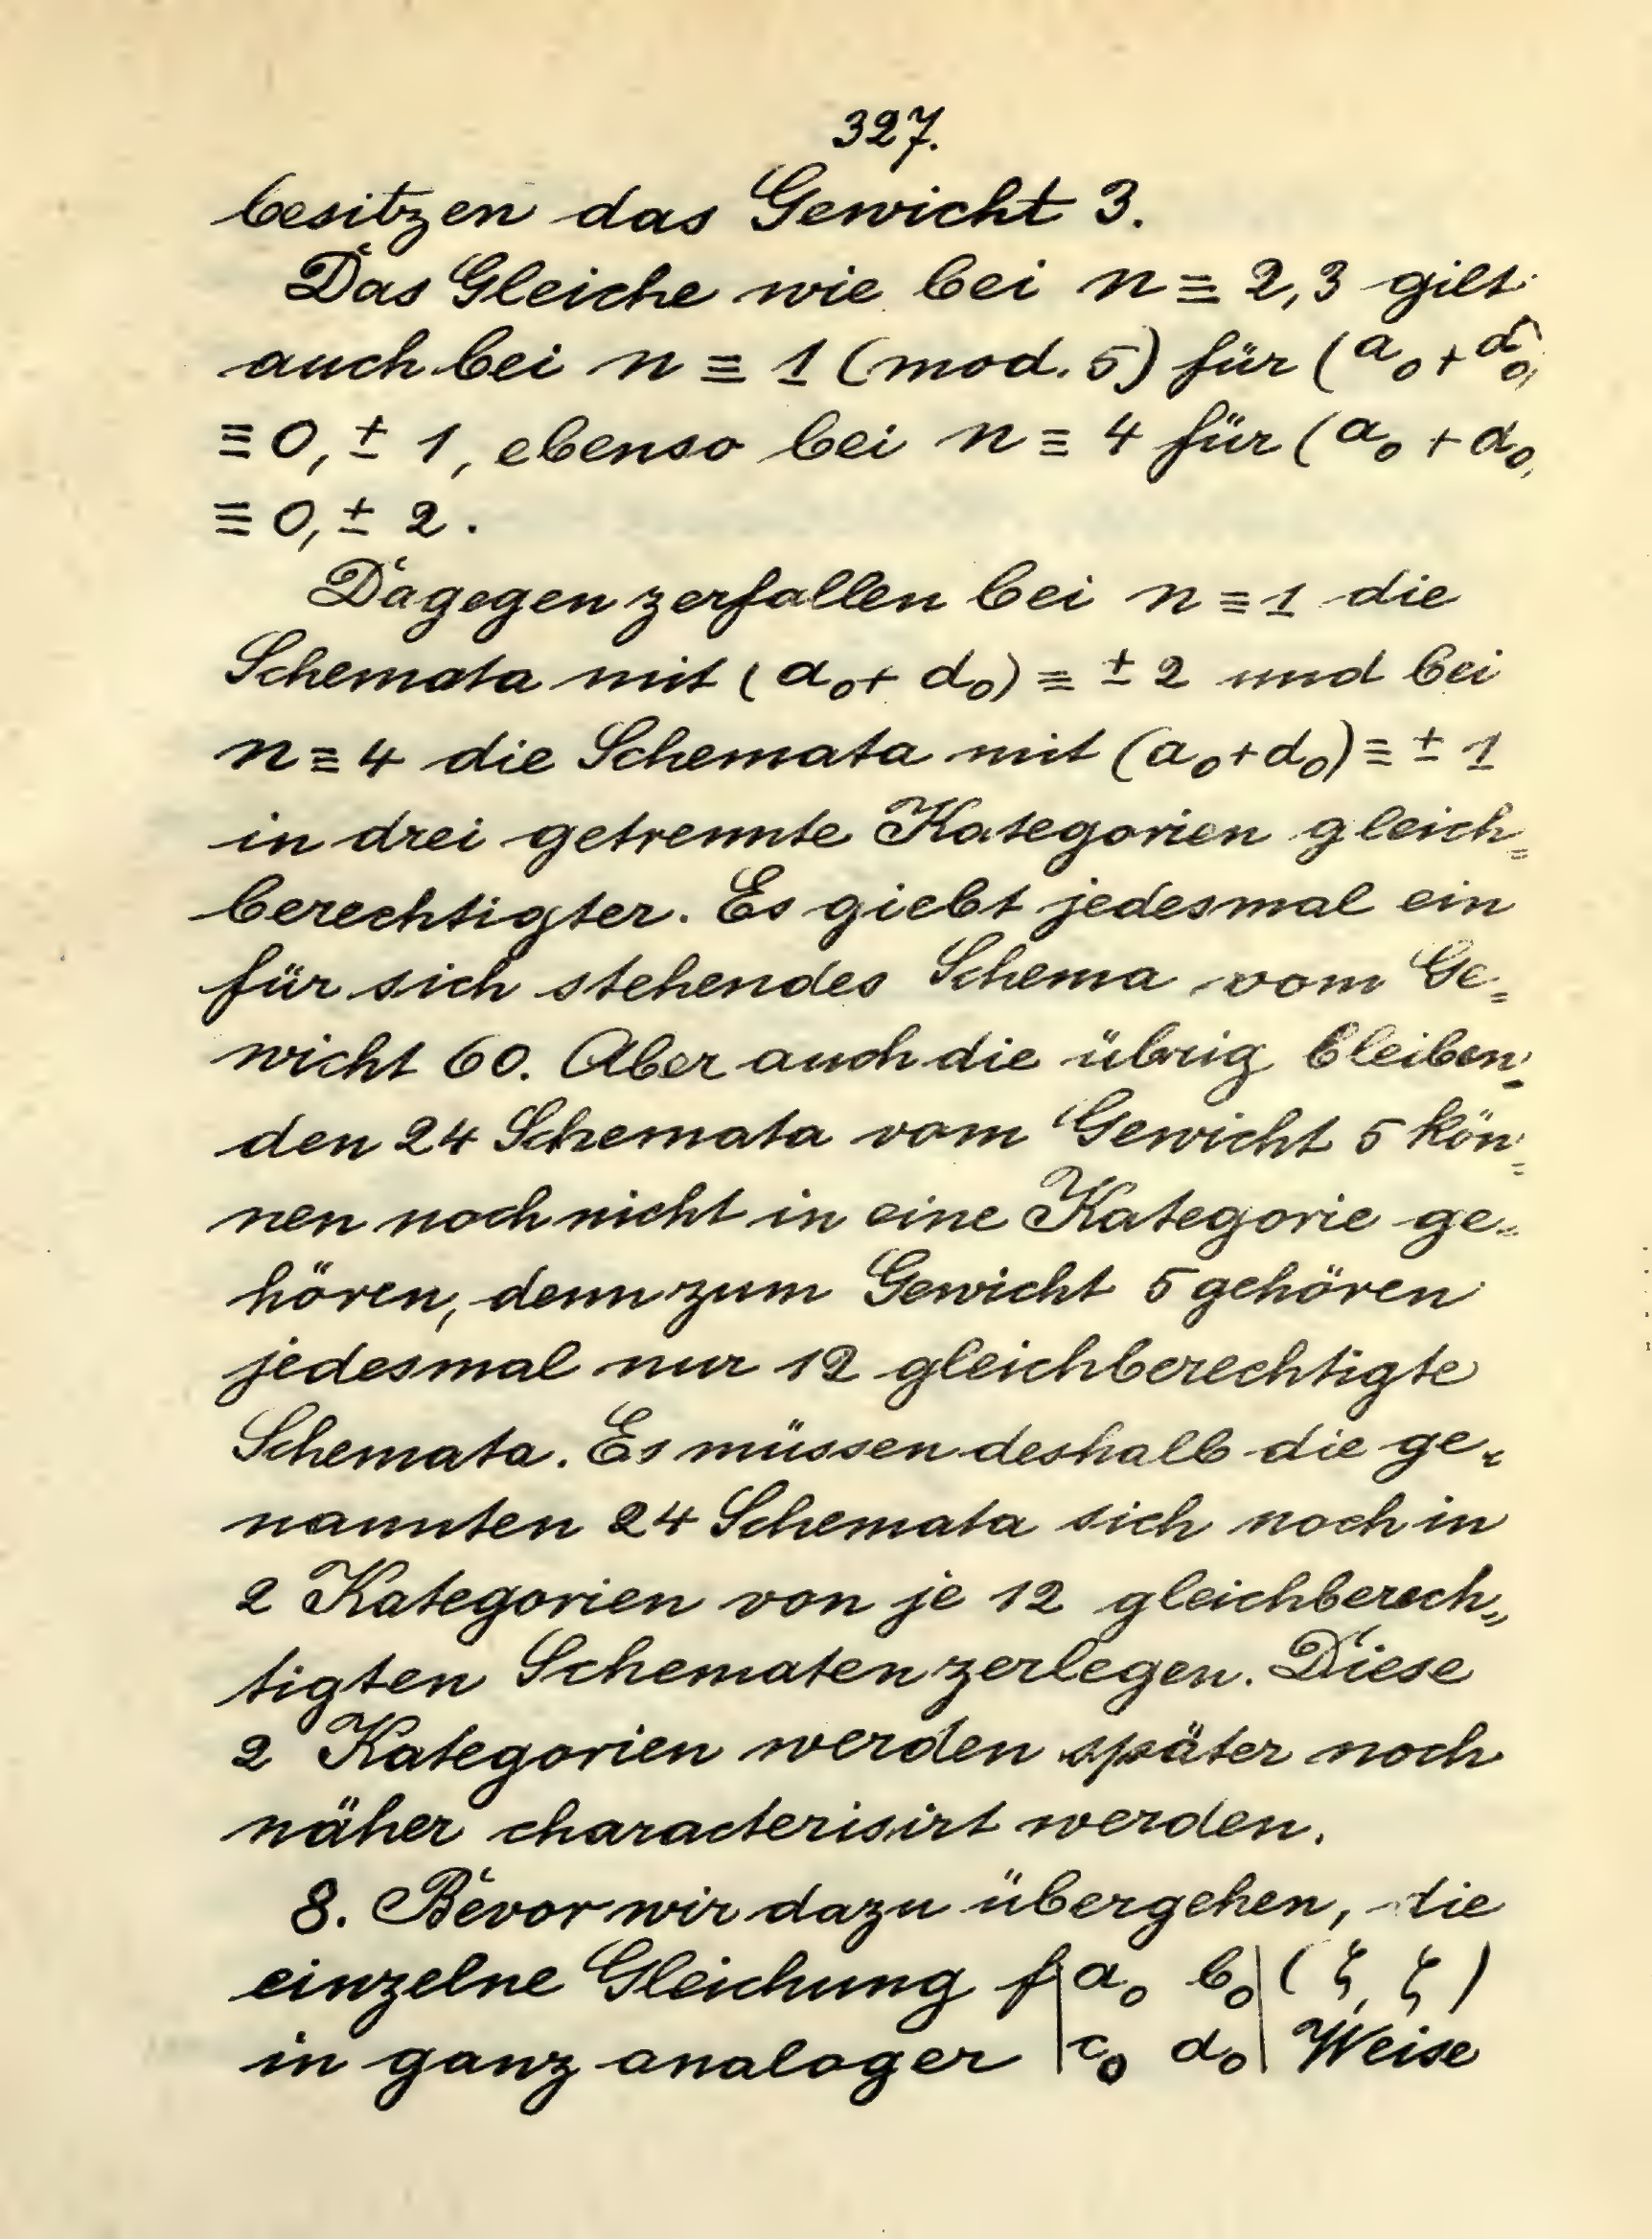 327.
besitzen das Gewicht 3.
Das Gleiche wie bei n ≡ 2,3 gilt
auch bei n ≡ 1 (mod. 5) für (a₀ + d₀)
≡ 0, ± 1, ebenso bei n ≡ 4 für (a₀ + d₀)
≡ 0, ± 2.
Dagegen zerfallen bei n ≡ 1 die
Schemata mit (a₀ + d₀) ≡ ± 2 und bei
n ≡ 4 die Schemata mit (a₀ + d₀) ≡ ± 1
in drei getrennte Kategorien gleich=
berechtigter. Es giebt jedesmal ein
für sich stehendes Schema vom Ge=
wicht 60. Aber auch die übrig bleiben=
den 24 Schemata vom Gewicht 5 kön=
nen noch nicht in eine Kategorie ge=
hören, denn zum Gewicht 5 gehören
jedesmal nur 12 gleichberechtigte
Schemata. Es müssen deshalb die ge=
nannten 24 Schemata sich noch in
2 Kategorien von je 12 gleichberech=
tigten Schematen zerlegen. Diese
2 Kategorien werden später noch
näher characterisirt werden.
8. Bevor wir dazu übergehen, die
einzelne Gleichung f|a₀ b₀|(ζ, ζ)
in ganz analoger |c₀ d₀| Weise